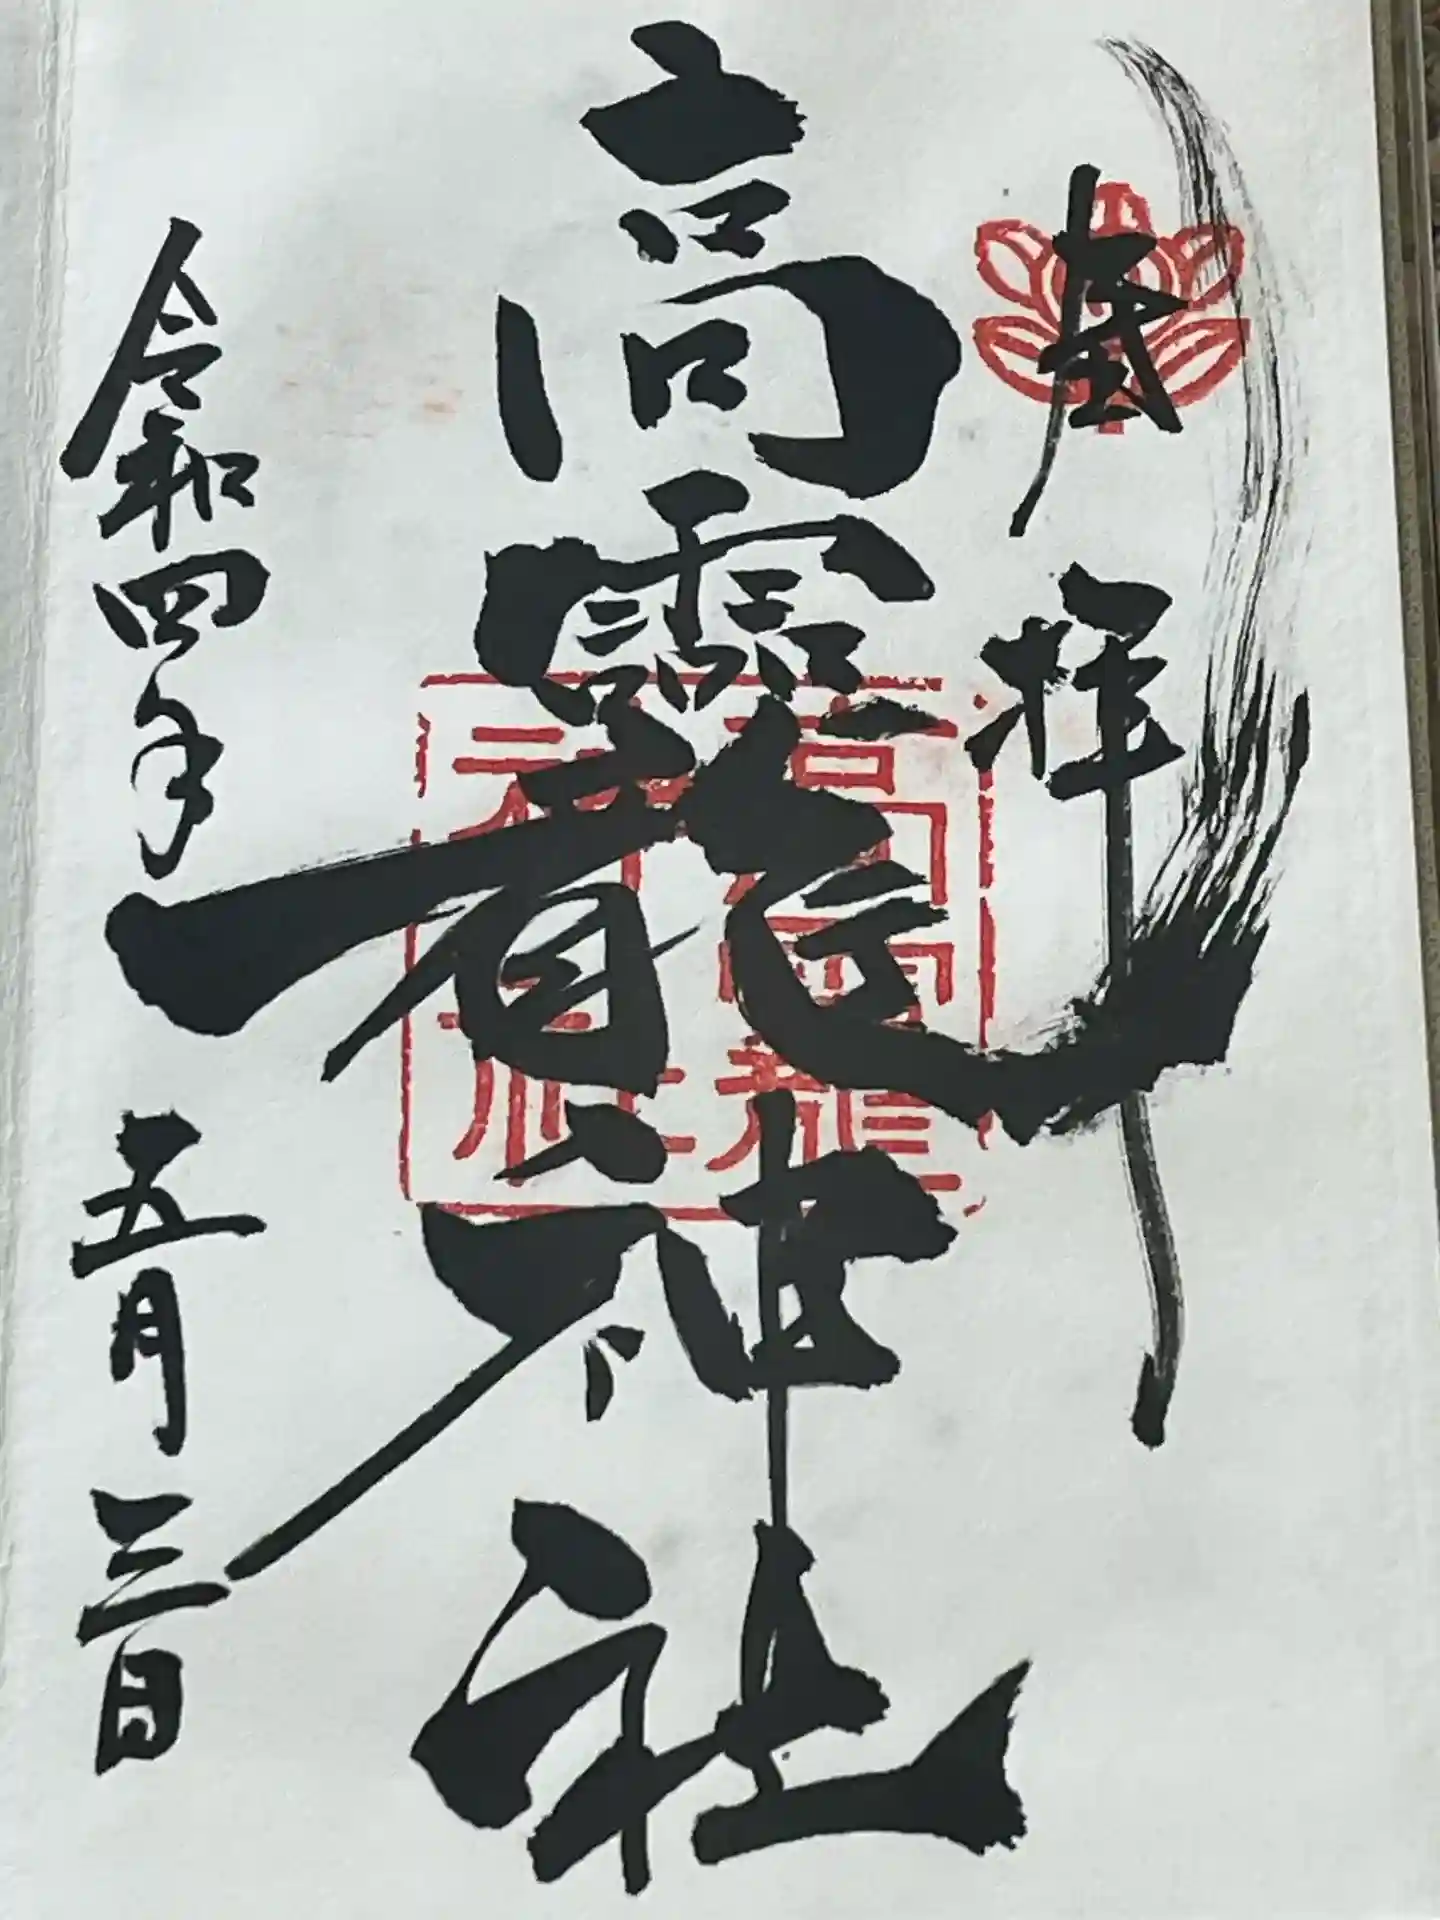 奉拝
高靇神社
令和四年五月三日
高龗神社